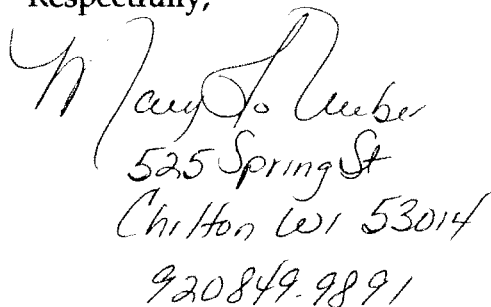 Respectfully,
Mary Jo
525 Spring St
Chilton WI 53014
920 849.9891